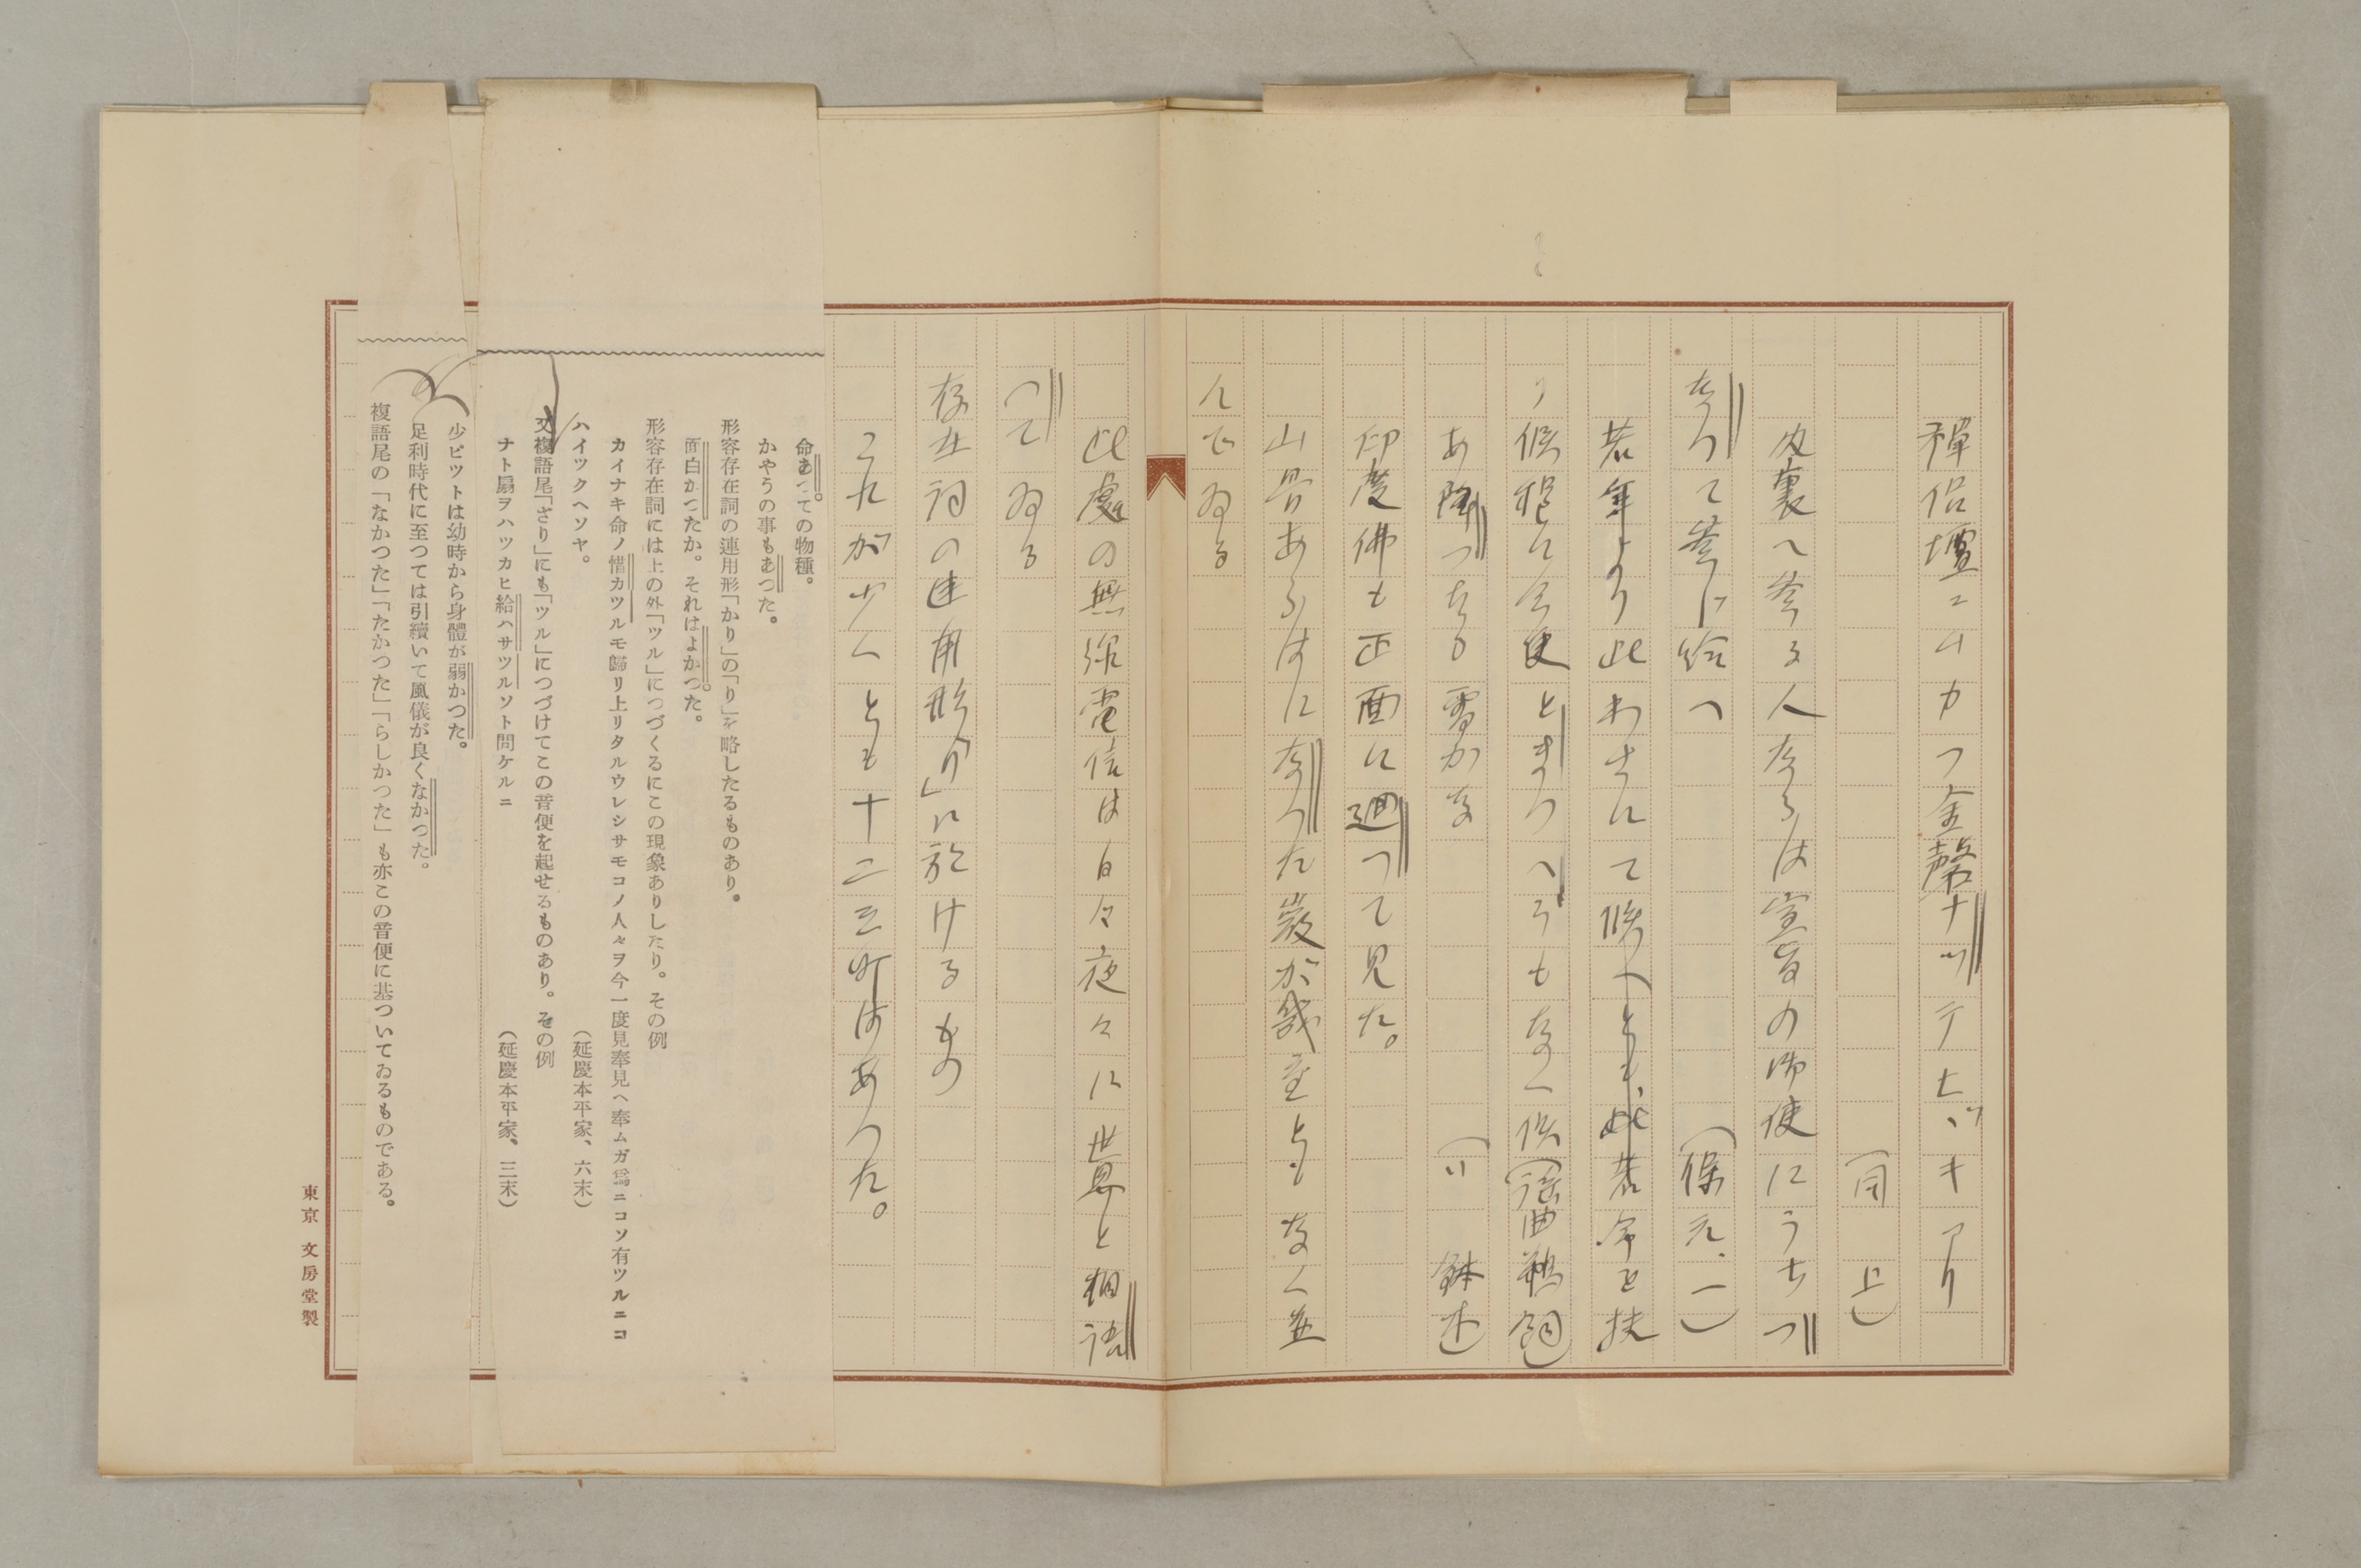 禪侶壇ニムカフ金磬ナツテヒヾキアリ
（同上）
内裏へ参る人あらは宣旨の御使にうちつ
なつて参ト給へ
若年より此わさにて候へとも、此若命を扶
り候程に今更とまつへうもなく候（謡曲鵜飼）
あ降つたる雪かな（〃鉢木）
印度佛も正面に廻つて見た。
山骨あらはになつた巌が幾重ともなく並
んでゐる
此處の無線電信は日々夜々に世界と相語
つてゐる
存在詞の連用形「り」に於けるもの
これが少くとも十二三町はあつた。
命あつての物種。
かやうの事もあつた。
形容存在詞の連用形「かり」の「り」を略したるものあり。
面白かつたか。それはよかつた。
形容存在詞には上の外「ツル」につづくるにこの現象ありしたり。その例
カイナキ命ノ惜カツルモ歸リ上リタルウレシサモコノ人々ヲ今一度見奉見ヘ奉ムガ爲ニコソ有ツルニコ
ハイツクヘソヤ。（延慶本平家、六末）
又複語尾「さり」にも「ツル」につづけてこの音便を起せるものあり。その例
ナト扇ヲハツカヒ給ハサツルソト問ケルニ（延慶本平家、三末）
少ピツトは幼時から身體が弱かつた。
足利時代に至つては引續いて風儀が良くなかつた。
複語尾の「なかつた」「たかつた」「らしかつた」も亦この音便に基ついてゐるものである。
東京 文房堂製